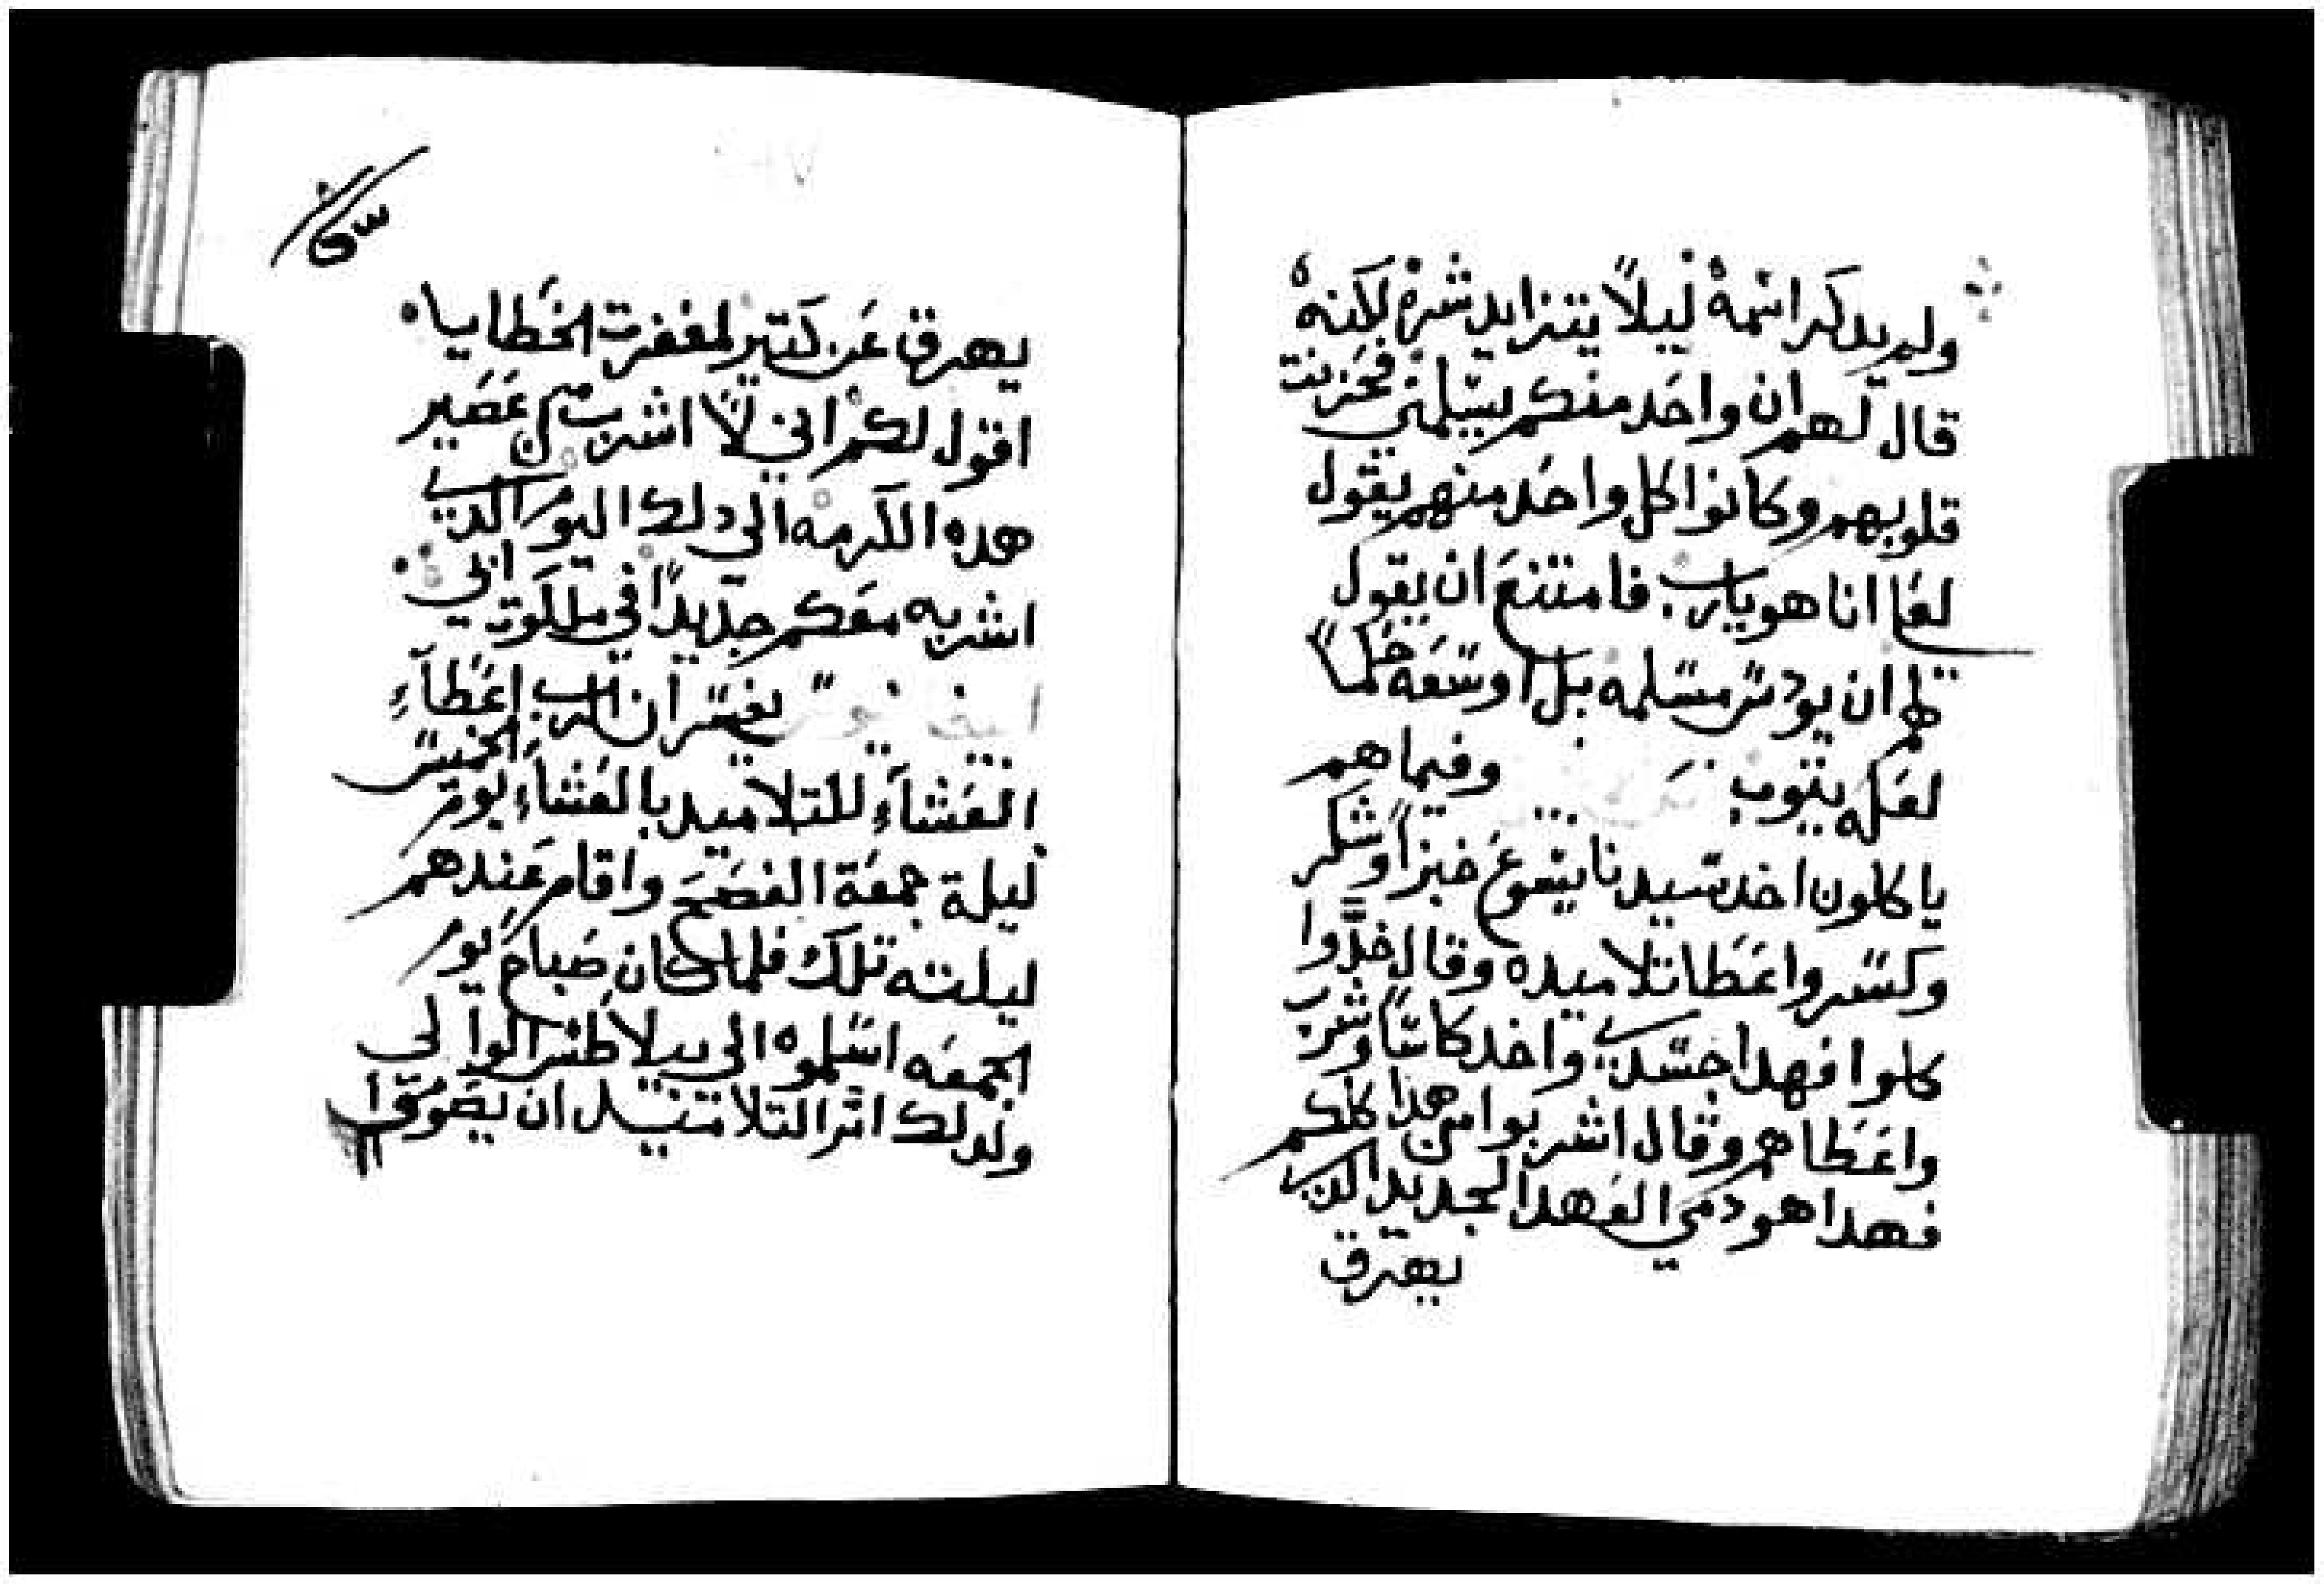 ولم يدكر اسمه ليلا يتزايد شره لكنه
قال لهم ان واحد منكم يسلمني فحزنت
قلوبهم وكانوا كل واحد منهم يقول
لعلي انا هو يارب فامتنع ان يقول
لهم ان يودس مسلمه بل اوسعه حلماً
لعله يتوب وفيما هم
ياكلون اخد سيدنا يسوع خبزاً وشكر
وكسر واعطا تلاميده وقال خدوا
كلوا فهدا جسدي واخد كاساً وشكر
واعطاهم وقال اشربوا من هدا كلكم
فهدا هو دمي العهد الجديد الدي
يهرق
يهرق عن كتير لمغفرت الخطايا
اقول لكم اني لا اشرب من عصير
هده الكرمه الي دلك اليوم الدي
اشربه معكم جديداً في ملكوت ابي
يفسر ان الرب اعطاء
العشاء للتلاميد بالعشاء يوم الخميس
ليلة جمعة الفصح واقام عندهم
ليلته تلك فلما كان صباح يوم
الجمعه اسلموه الي بيلاطس الوالي
ولدلك امر التلاميد ان يصوموا